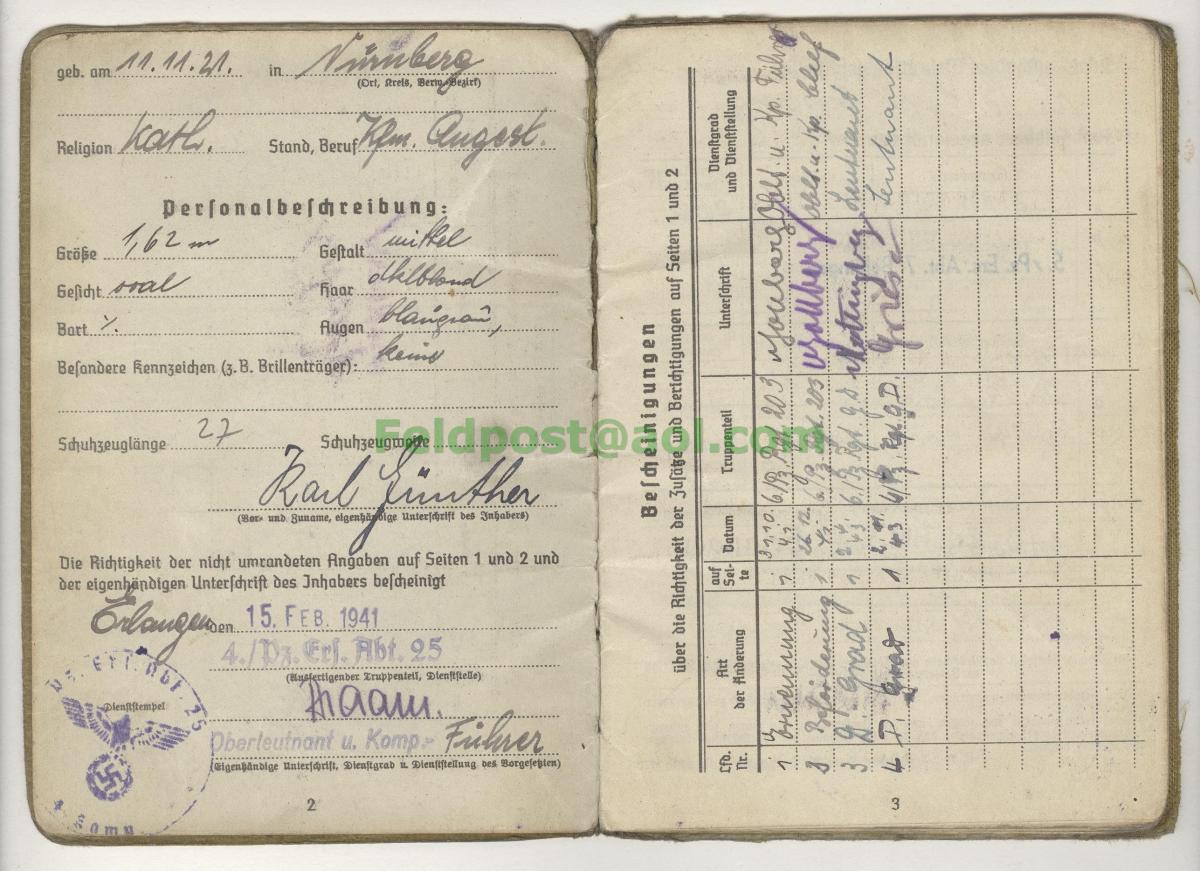 geb. am 11.11.21. in Nürnberg
(Ort, Kreis, Verw.-Bezirk)
Religion Kath. Stand, Beruf Kfm. Angest.
Personalbeschreibung:
Größe 1,62 m Gestalt mittel
Gesicht oval Haar dklblond
Bart ٪. Augen blaugrau,
Besondere Kennzeichen (z.B. Brillenträger): keine
Schuhzeuglänge 27 Schuhzeugweite
Feldpost@aol.com
Karl Günther
(Vor- und Zuname, eigenhändige Unterschrift des Inhabers)
Die Richtigkeit der nicht umrandeten Angaben auf Seiten 1 und 2 und
der eigenhändigen Unterschrift des Inhabers bescheinigt
Erlangen den 15. FEB. 1941
4./Pz. Ers. Abt. 25
(Ausfertigender Truppenteil, Dienststelle)
Dienststempel
Oberleutnant u. Komp.- Führer
(Eigenhändige Unterschrift, Dienstgrad u. Dienststellung des Vorgesetzten)
Ers. Abt. 25
2
Bescheinigungen
über die Richtigkeit der Zusätze und Berichtigungen auf Seiten 1 und 2
Lfd. Nr. Art der Änderung auf Seite Datum Truppenteil Unterschrift Dienstgrad und Dienststellung
1 Ernennung 1 31.10. 41 6./Pz. Rgt. 203 Oblt. u. Kp. Führer
2 Beförderung 1 26.12. 41 6./Pz. Rgt. 203 Oblt. u. Kp. Chef
3 D. Grad 1 43 6./Pz. Rgt. G.D. Leutnant
4 D. Grad 1 2.11. 43 Rgt. G.D. Leutnant
3